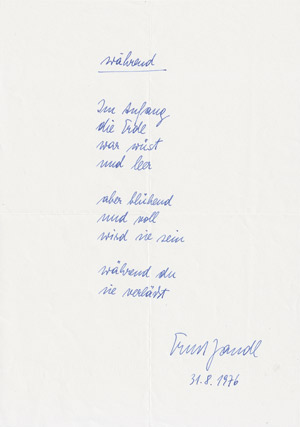 während
Im Anfang
die Erde
war wüst
und leer
aber blühend
und voll
wird sie sein
während du
sie verläßt
Ernst Jandl
31.8.1976